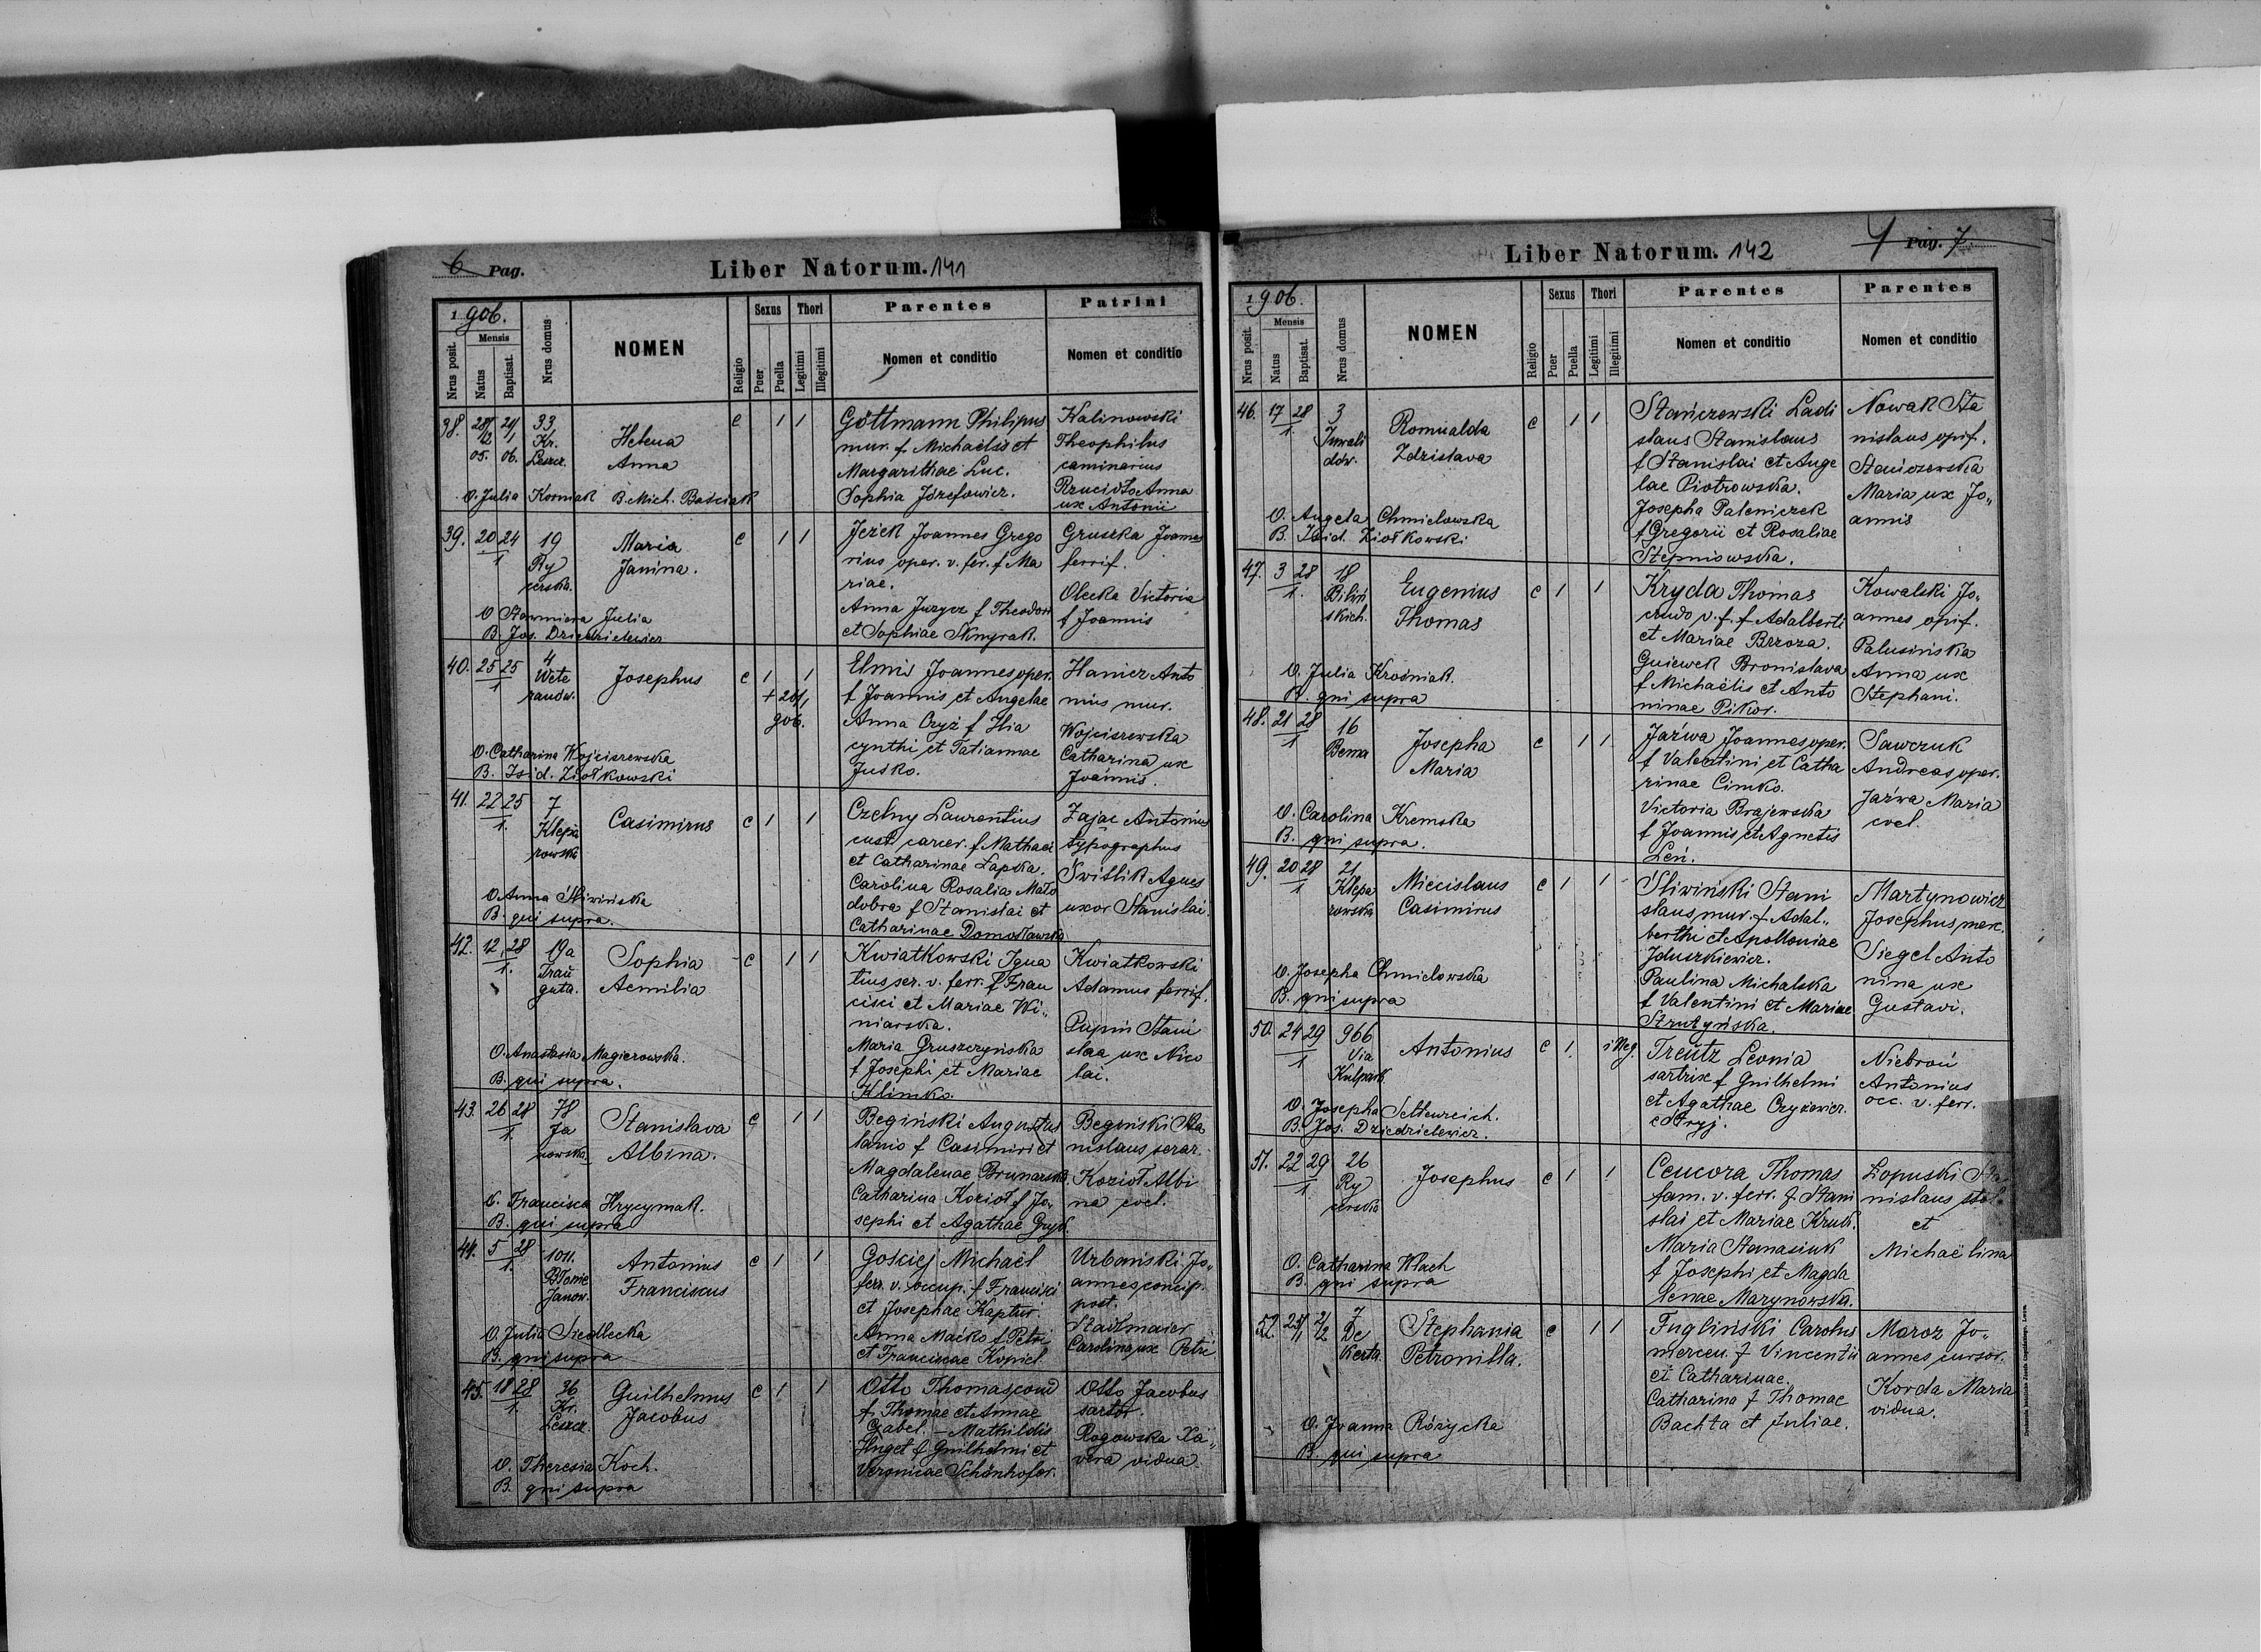 6 Pag.
Liber Natorum. 141
1906.
Mensis
Nrus posit.
Natus
Baptisat.
Nrus domus
NOMEN
Religio
Sexus
Puer
Puella
Thori
Legitimi
Illegitimi
Parentes
Nomen et conditio
Patrini
Nomen et conditio
38. 28/12 05. 24/1 06.
33 Kr. Leszcz.
Helena
Anna
c 1 1
Göttmann Philipus
mur. f. Michaelis et
Margarithae Luc.
Sophia Józefowicz.
Kalinowski
Theophilus
caminarius
Rzucidło Anna
ux Antonii
O. Julia Kosmak B. Mich. Baściak
39. 20 24
1
19
Ry
cerska.
Maria
Janina.
c 1 1
Jeżek Joannes Grego
rius oper. v. fer. f Ma
riae.
Anna Jurycz f Theodori
et Sophiae Skmyrak.
Gruszka Joannes
ferrif.
Olecka Victoria
f Joannis
O Stawniera Julia
B. Jos. Dziedzielewicz
40. 25 25
1
4
Wete
ranów.
Josephus
c 1 1
+ 26/1
906.
Elmis Joannes oper.
f Joannis et Angelae
Anna Czyż f Hia
cynthi et Tatiannae
Juśko.
Hanicz Anto
nius mur.
Wojciszewska
Catharina ux
Joannis.
O. Catharina Wojciszewska
B. Isid. Ziółkowski
41. 22 25
1.
7
Klepa
rowska
Casimirus
c 1 1
Czelny Laurentius
cust. carcer. f Mathaei
et Catharinae Łapka.
Carolina Rosalia Mało
dobra f Stanislai et
Catharinae Domosławska
Zając Antonius
typographus
Świtlik Agnes
uxor Stanislai.
O Anna Śliwińska
B. qui supra.
42. 12 28
1.
19a
Trau
guta.
Sophia
Aemilia
c 1 1
Kwiatkowski Igna
tius ser. v. ferr. f Fran
cisci et Mariae Wi„
niarska.
Maria Gruszczyńska
f Josephi et Mariae
Klimko.
Kwiatkowski
Adamus ferrif.
Pupin Stani
slaa ux Nico
lai.
O. Anastasia Magierowska.
B. qui supra.
43. 26 28
1.
78
Ja
nowska
Stanislava
Albina.
c 1 1
Begiński Augustus
lanio f Casimiri et
Magdalenae Brunarska.
Catharina Kozioł f Jo„
sephi et Agathae Gryb.
Begiński Sta
nislaus serar.
Kozioł Albi
na coel.
O. Francisca Hrycymak.
B. qui supra
44. 5 28
1.
1011.
Błonie
Janow.
Antonius
Franciscus
c 1 1
Gościej Michaël
ferr. v. occup. f Francisci
et Josephae Kaptur
Anna Maćko f Petri
et Franciscae Kopiel.
Urbański Jo„
annes concip.
post.
Stadlmaier
Carolina ux Petri
O. Julia Siedlecka
B. qui supra
45. 18 28
1.
36
Kr.
Leszcz.
Guilhelmus
Jacobus
c 1 1
Otto Thomas cond
f. Thomae et Annae
Gabel. – Mathildis
Huget f Guilhelmi et
Veronicae Schönhofer.
Otto Jacobus
sartor.
Rogowska Xa„
vera vidua
O. Theresia Koch.
B. qui supra
Liber Natorum. 142
Pag. 7.
1906.
Mensis
Nrus posit.
Natus
Baptisat.
Nrus domus
NOMEN
Religio
Sexus
Puer
Puella
Thori
Legitimi
Illegitimi
Parentes
Nomen et conditio
Parentes
Nomen et conditio
46. 17 28
1.
3
Inwali
dów.
Romualda
Zdzislava
c 1 1
Stańczewski Ladi
slaus Stanislaus
f Stanislai et Ange
lae Piotrowska.
Josepha Paleniczek
f Gregorii et Rosaliae
Stepniowska.
Nowak Sta
nislaus opif.
Staniszewska
Maria ux Jo„
annis
O. Angela Chmielowska
B. Isid. Ziółkowski
47. 3 28
1.
18
Biliń
skich.
Eugenius
Thomas
c 1 1
Kryda Thomas
cudo v. f. f Adalberti
et Mariae Brzoza.
Gniewek Bronislava
f Michaëlis et Anto
ninae Pikor.
Kowalski Jo„
annes opif.
Palusińska
Anna ux
Stephani.
O. Julia Krośniak.
B. qui supra
48. 21 28
1
16
Bema
Josepha
Maria
c 1 1
Jaźwa Joannes oper.
f Valentini et Catha
rinae Cimko.
Victoria Brajewska
f Joannis et Agnetis
Leń.
Sawczuk
Andreas oper.
Jaźwa Maria
coel.
O. Carolina Kremska
B. qui supra.
49. 20 28
1
21
Klepa
rowska
Miecislaus
Casimirus
c 1 1
Śliwiński Stani
slaus mur. f Adal„
berthi et Apolloniae
Iduszkiewicz.
Paulina Michalska
f Valentini et Mariae
Strużyńska.
Martynowicz
Josephus merc.
Siegel Anto
nina ux
Gustavi.
O. Josepha Chmielowska
B. qui supra
50. 24 29
1
966
Via
Kulpark.
Antonius
c 1. illeg.
Treütz Leonia
sartrix f Guilhelmi
et Agathae Czyżewicz.
Niebroń
Antonius
occ. v. ferr.
O. Josepha Setteureich.
B. Jos. Dziedzielewicz.
51. 22 29
1
26
Ry
cerska
Josephus
c 1 1
Cencora Thomas
fam. v. ferr. f Stani
slai et Mariae Kruk.
Maria Stanasiuk
f Josephi et Magda
lenae Marynowska.
Łopuski Sta
nislaus stol.
et
Michaëlina
O. Catharina Klach
B. qui supra
52. 25/1 2/2
7
De
kerta.
Stephania
Petronilla.
c 1 1
Fuglinski Carolus
mercen. f Vincentii
et Catharinae.
Catharina f Thomae
Bachta et Juliae.
Maroz Jo„
annes cursor.
Korda Maria
vidua.
O. Joanna Różycka
B. qui supra